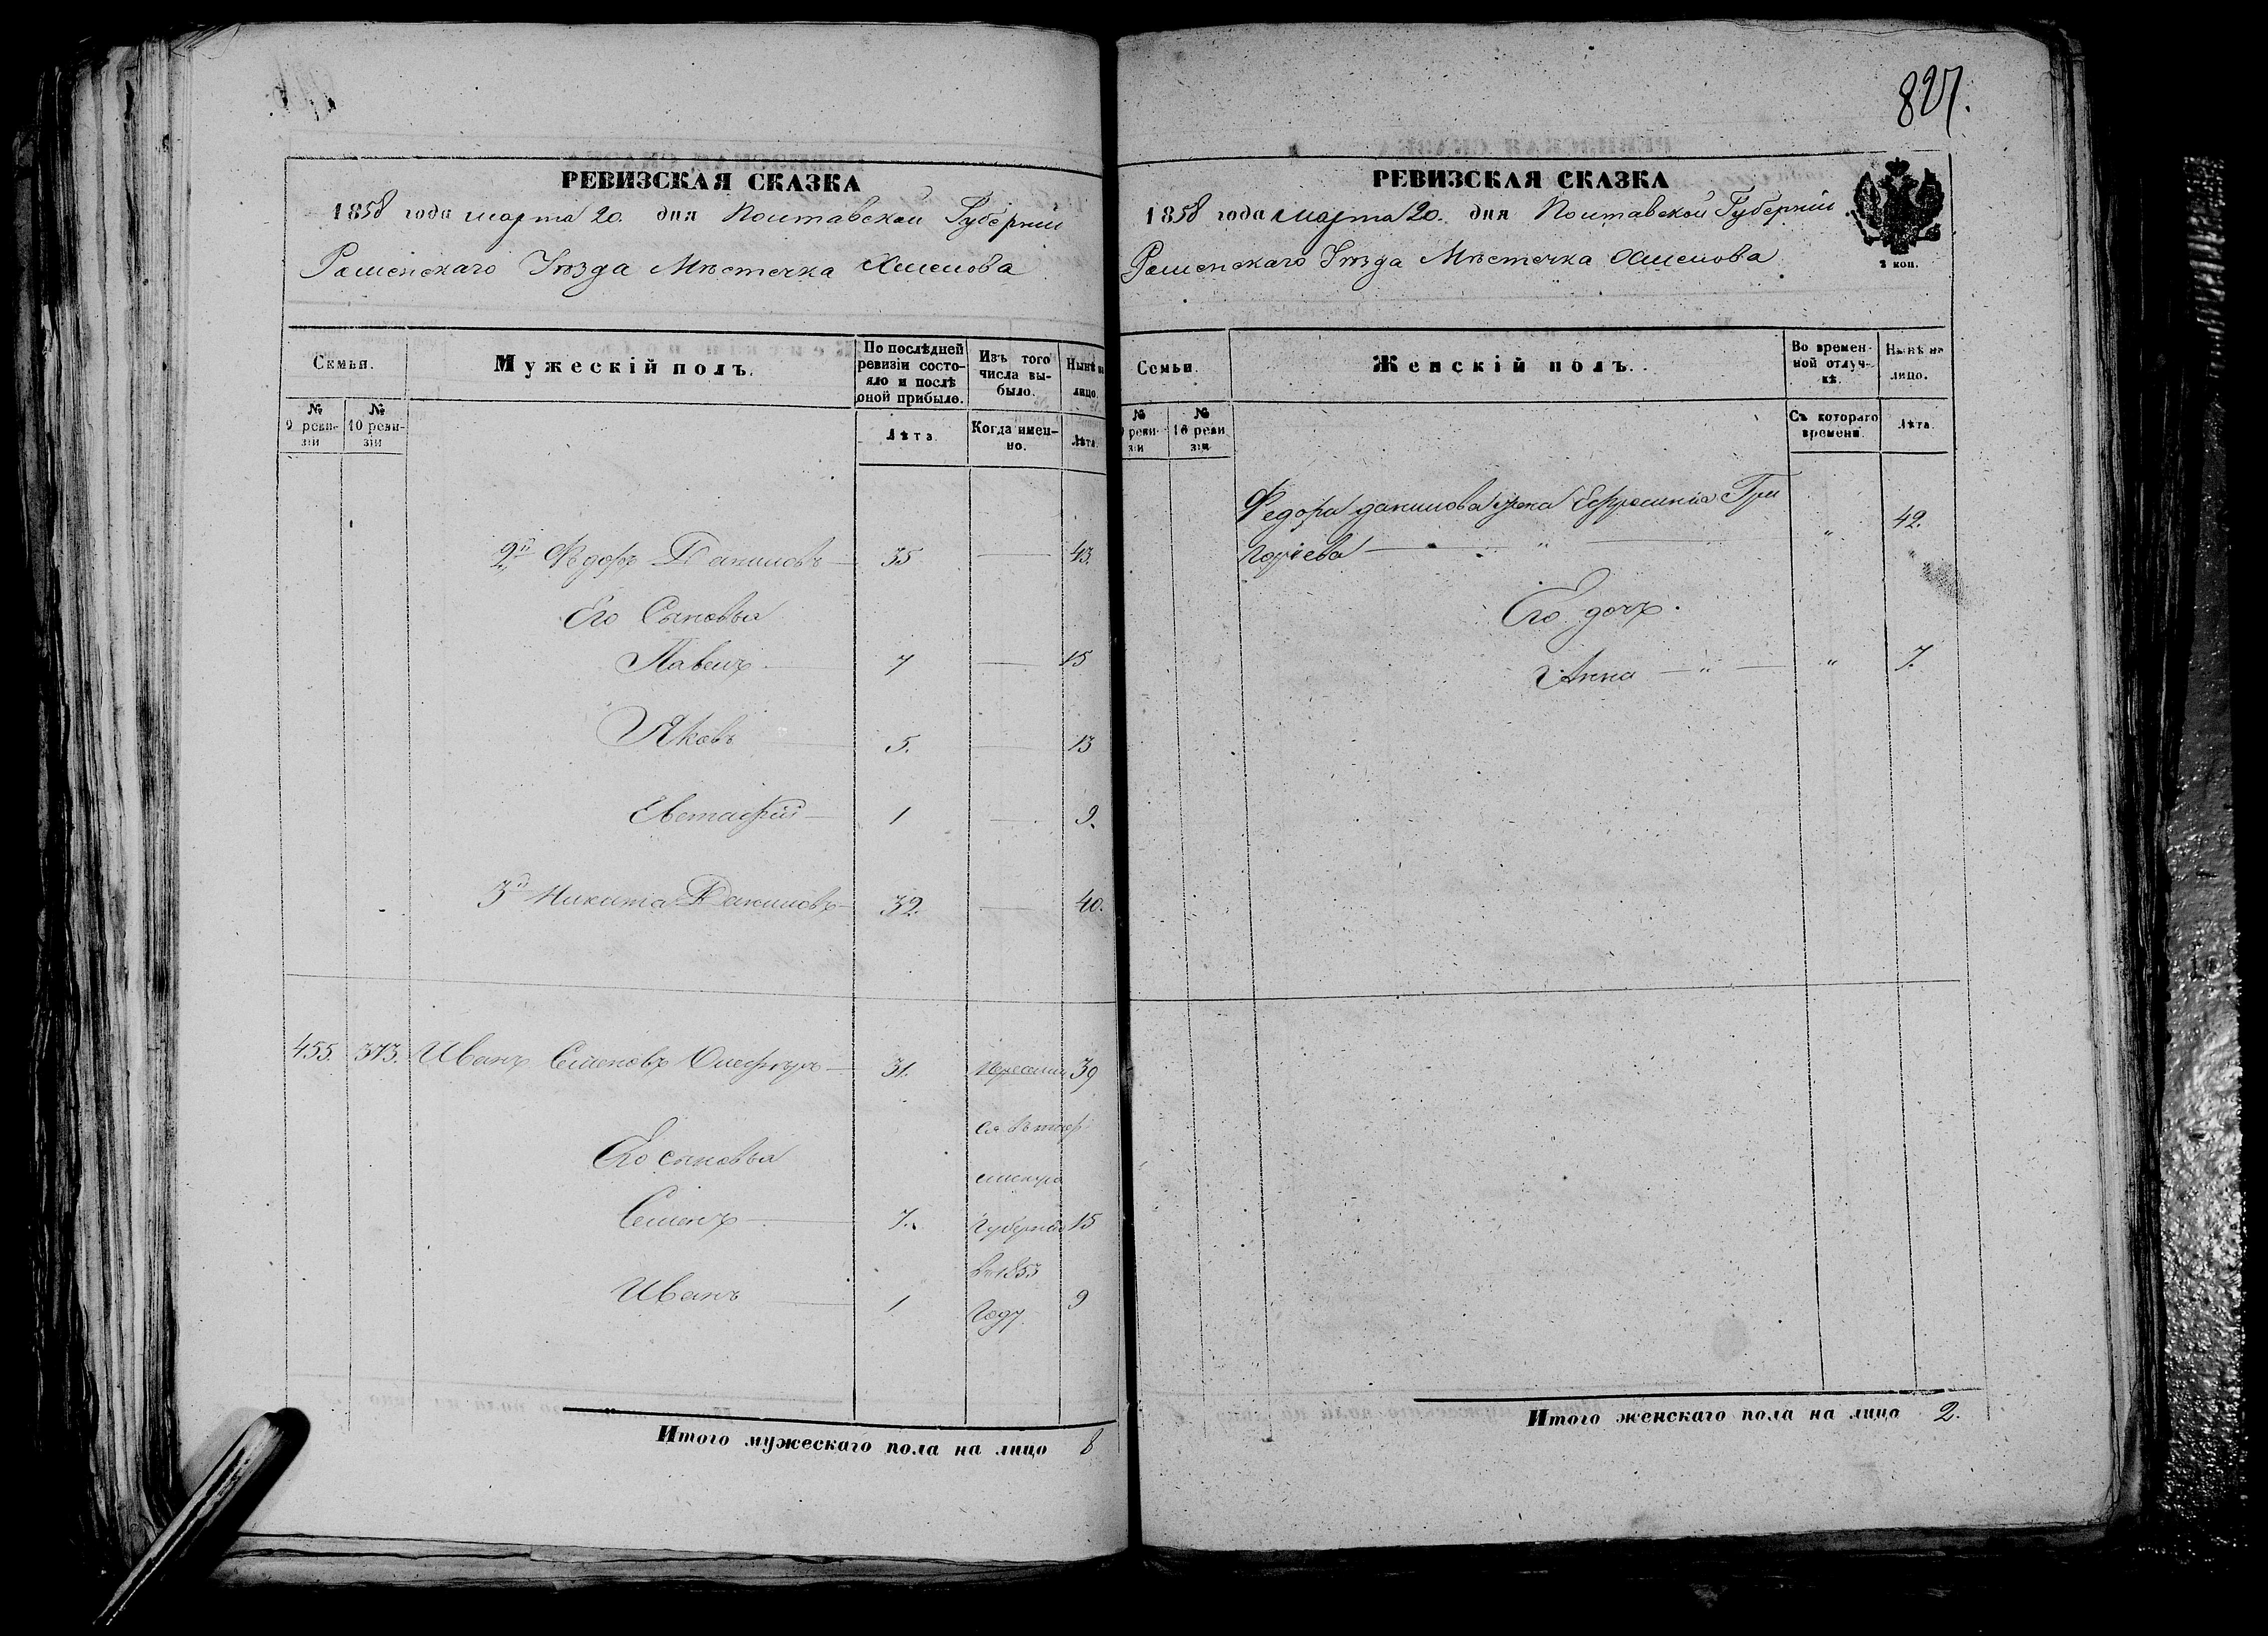 827.
РЕВИЗСКАЯ СКАЗКА
1858 года марта 20. дня Полтавской Губерніи
Роменскаго Уѣзда Мѣстечка Смелова
Семьи.
Мужескій полъ.
По послѣдней ревизіи состояло и послѣ оной прибыло.
Изъ того числа выбыло.
Нынѣ на лицо.
№ 9 ревизіи
№ 10 ревизіи
Лѣта
Когда именно.
Лѣта.
2й Ѳедоръ Даниловъ 35 — 43.
Его Сыновья
Павелъ 7 — 15
Яковъ 5. — 13
Евстафій 1 — 9.
3й Никита Даниловъ 32. — 40.
455. 373. Иванъ Семеновъ 31. 39
Его сыновья
Семенъ 7. Губернію 15
въ 1853
Иванъ 1 году 9
Итого мужескаго пола на лицо 8
РЕВИЗСКАЯ СКАЗКА
1858 года марта 20. дня Полтавской Губерніи
Роменскаго Уѣзда Мѣстечка Смелова
2 коп.
Семьи.
Женскій полъ.
Во временной отлучкѣ.
Нынѣ на лицо.
№ 9 ревизіи
№ 10 ревизіи
Съ котораго времени.
Лѣта.
Федора данилова жена Ефросинія Гри
горіева — " — " 42.
Его дочь.
Анна — " — " 7.
Итого женскаго пола на лицо 2.